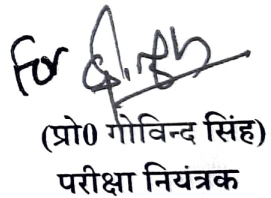 For
(प्रो0 गोविन्द सिंह)
परीक्षा नियंत्रक